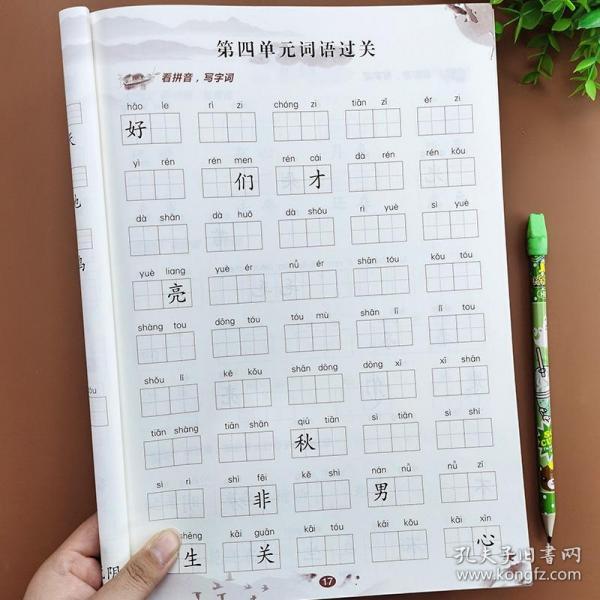 第四单元词语过关
看拼音，写字词
hǎo le rì zi chóng zi tiān zǐ ér zi
好
yì rén rén men rén cái dà rén rén kǒu
们 才
dà shān dà huǒ dà shǒu rì yuè sì yuè
yuè liang yuè ér nǚ ér shān tóu kǒu tóu
亮
shàng tou dōng tóu tóu mù shān lǐ lǐ tou
shǒu lǐ kě kǒu shān dōng dōng xī xī shān
tiān shàng tiān shān qiū tiān sì tiān sì shí
秋
sì rì shì fēi kě shì nán nǚ nǚ zǐ
非 男
shēng kāi guān kāi tóu kāi kǒu kāi xīn
生 关 心
17
孔夫子旧书网
www.kongfz.com